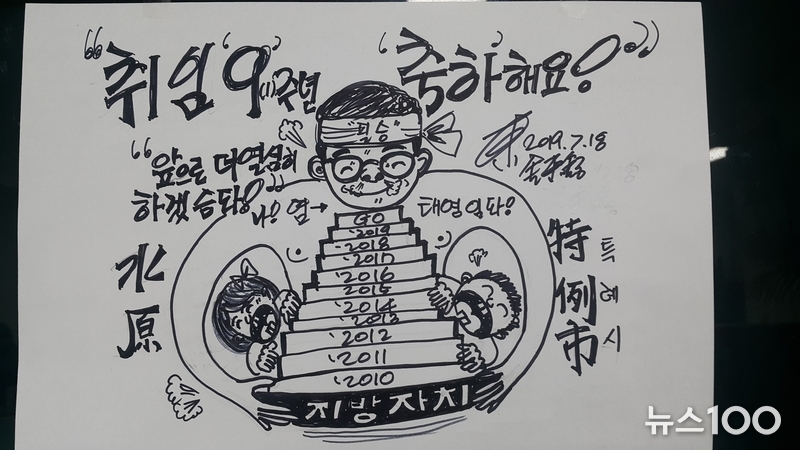 “취임 ‘9’(1)주년 ‘축하’해요!”
필승
2019.7.18
“앞으로 더열심히
하겠슴돠!”
나! 염→
태영임돠!
GO
'2019
'2018
'2017
'2016
'2015
'2014
'2013
'2012
'2011
'2010
지방자치
水原
特例市
특례시
뉴스100